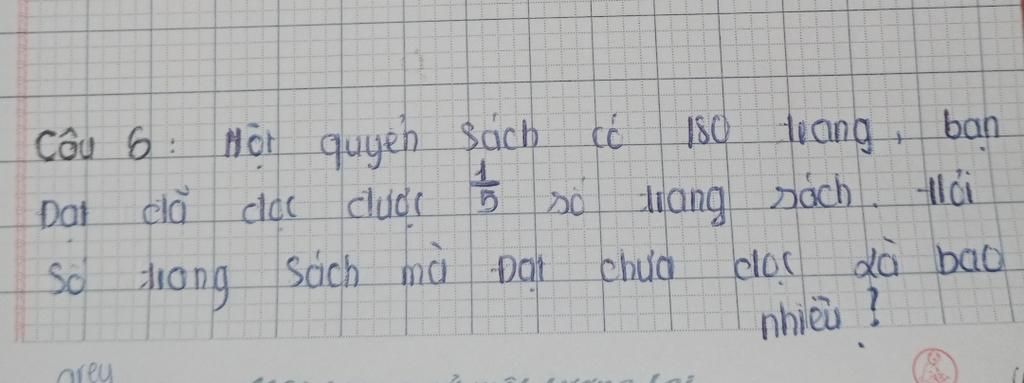 Câu 6: Một quyển sách có 180 trang, bạn
Đạt đã đọc được 1/5 số trang sách. Hỏi
số trang sách mà Đạt chưa đọc là bao
nhiêu?